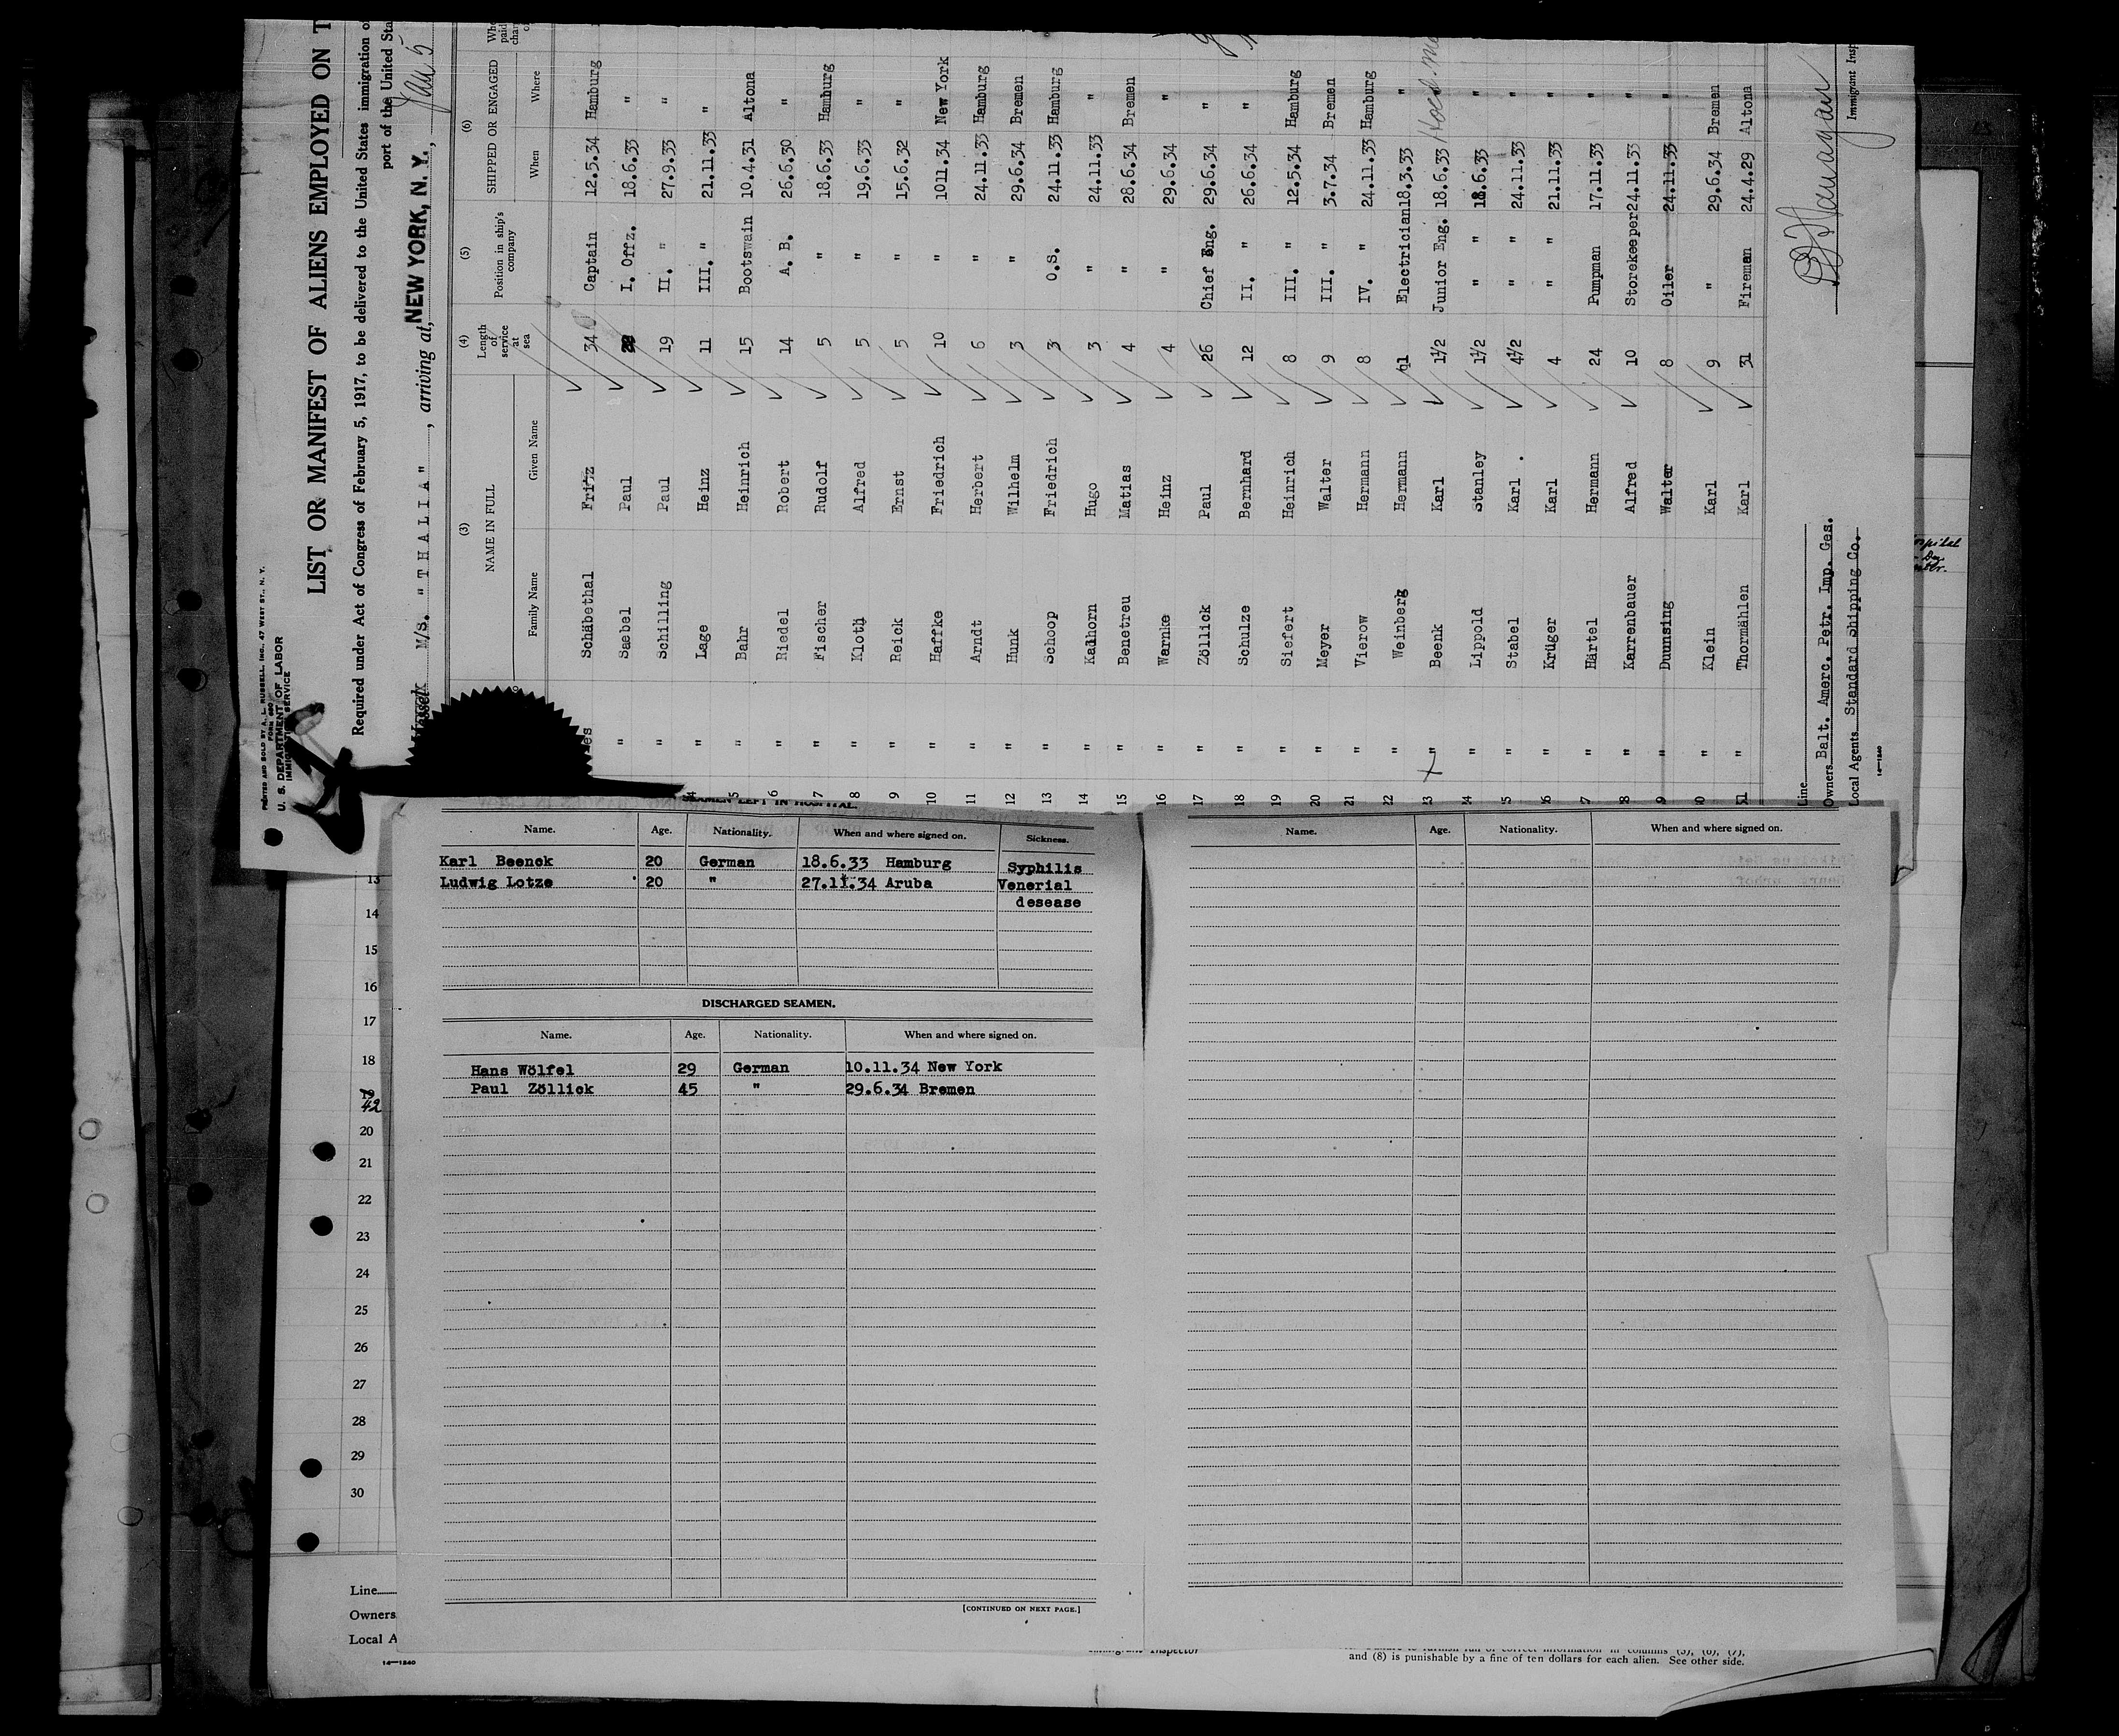 PRINTED AND SOLD BY A. L. RUSSELL, INC., 47 WEST ST., N. Y.
FORM 680
U. S. DEPARTMENT OF LABOR
IMMIGRATION SERVICE
LIST OR MANIFEST OF ALIENS EMPLOYED ON T
Required under Act of Congress of February 5, 1917, to be delivered to the United States immigration o
port of the United Sta
Vessel M/S. "THALIA", arriving at NEW YORK, N. Y., Jan 5
(3) (4) (5) (6)
NAME IN FULL Length of service at sea Position in ship's company SHIPPED OR ENGAGED
Family Name Given Name When Where
es Schäbethal Fritz 34 Captain 12.5.34 Hamburg
" Saebel Paul I. Offz. 18.6.33 "
" Schilling Paul 19 II. " 27.9.33 "
4 " Lage Heinz 11 III. " 21.11.33 "
5 " Bahr Heinrich 15 Bootswain 10.4.31 Altona
6 " Riedel Robert 14 A. B. 26.6.30 "
7 " Fischer Rudolf 5 " 18.6.33 Hamburg
8 " Kloth Alfred 5 " 19.6.33 "
9 " Reick Ernst 5 " 15.6.32 "
10 " Haffke Friedrich 10 " 1011.34 New York
11 " Arndt Herbert 6 " 24.11.33 Hamburg
12 " Hunk Wilhelm 3 " 29.6.34 Bremen
13 " Schoop Friedrich 3 O.S. 24.11.33 Hamburg
14 " Kadhorn Hugo 3 " 24.11.33 "
15 " Benetreu Matias 4 " 28.6.34 Bremen
16 " Warnke Heinz 4 " 29.6.34 "
17 " Zöllick Paul 26 Chief Eng. 29.6.34 "
18 " Schulze Bernhard 12 II. " 26.6.34 "
19 " Siefert Heinrich 8 III. " 12.5.34 Hamburg
20 " Meyer Walter 9 III. " 3.7.34 Bremen
21 " Vierow Hermann 8 IV. " 24.11.33 Hamburg
22 " Weinberg Hermann 11 Electrician 18.3.33 "
3 " Beenk Karl 1½ Junior Eng. 18.6.33
4 " Lippold Stanley 1½ " " 18.6.33 "
5 " Stabel Karl . 4½ " " 24.11.33 "
6 " Krüger Karl 4 " " 21.11.33 "
7 " Härtel Hermann 24 Pumpman 17.11.33 "
8 " Karrenbauer Alfred 10 Storekeeper 24.11.33 "
9 " Dnunsing Walter 8 Oiler 24.11.33 "
0 " Klein Karl 9 " 29.6.34 Bremen
31 " Thormählen Karl 31 Fireman 24.4.29 Altona
Line
Owners Balt. Amerc. Petr. Imp. Ges.
Local Agents Standard Shipping Co.
Immigrant Insp
14—1240
SEAMEN LEFT IN HOSPITAL.
Name. Age. Nationality. When and where signed on. Sickness.
Karl Beenck 20 German 18.6.33 Hamburg Syphilis
Ludwig Lotze 20 " 27.11.34 Aruba Venerial
desease
DISCHARGED SEAMEN.
Name. Age. Nationality. When and where signed on.
Hans Wölfel 29 German 10.11.34 New York
Paul Zöllick 45 " 29.6.34 Bremen
[CONTINUED ON NEXT PAGE.]
Name. Age. Nationality. When and where signed on.
13
14
15
16
17
18
19
42
20
21
22
23
24
25
26
27
28
29
30
Line
Owners
Local A
14—1240
Immigrant Inspector
and (8) is punishable by a fine of ten dollars for each alien. See other side.